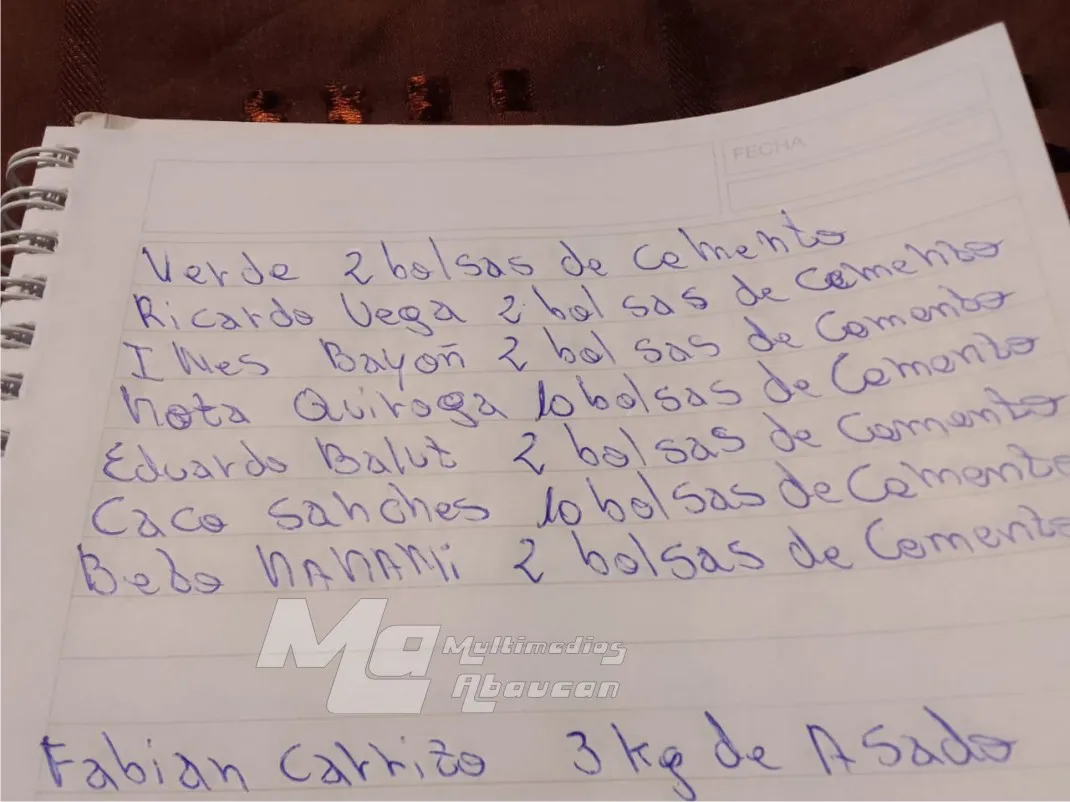 FECHA
Verde 2 bolsas de cemento
Ricardo Vega 2 bolsas de cemento
Ines Bayoñ 2 bolsas de Cemento
Nota Quiroga 10 bolsas de Cemento
Eduardo Balut 2 bolsas de Cemento
Caco Sanches 10 bolsas de Cemento
Bebo NANAMi 2 bolsas de Cemento
Ma Multimedios
Abaucan
Fabian Carrizo 3 kg de Asado